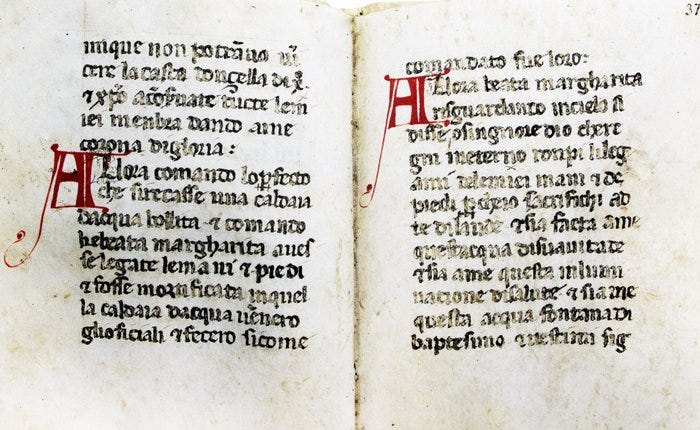 mique non potrãno vĩ
cere lacasta doncella di .x.
⁊ xp̃o tucte lem
iei menbra dando ame
corona digloria :
Allora comando loꝑfecto
che sirecasse una caldaia
dacqua bollita ⁊ comando
kebeata margharita aues
se legate lemani ⁊ piedi
⁊ fosse mortificata inquel
la caldaia dacqua uenero
glioficiali ⁊ fecero sicome
37
comandato fue loro:
Allora beata margharita
risguardando incielo si
disse osingnore dio chere
gni ineterno ronpi lileg
ami delemiei mani ⁊ de
piedi ꝑcheio sacrifichi ad
te dilaude ⁊ sia facta ame
questacqua disuauitade
⁊ sia ame questa inlumi
natione disalute ⁊ sia me
questa acqua fontana di
baptesimo ⁊ uestimi sig